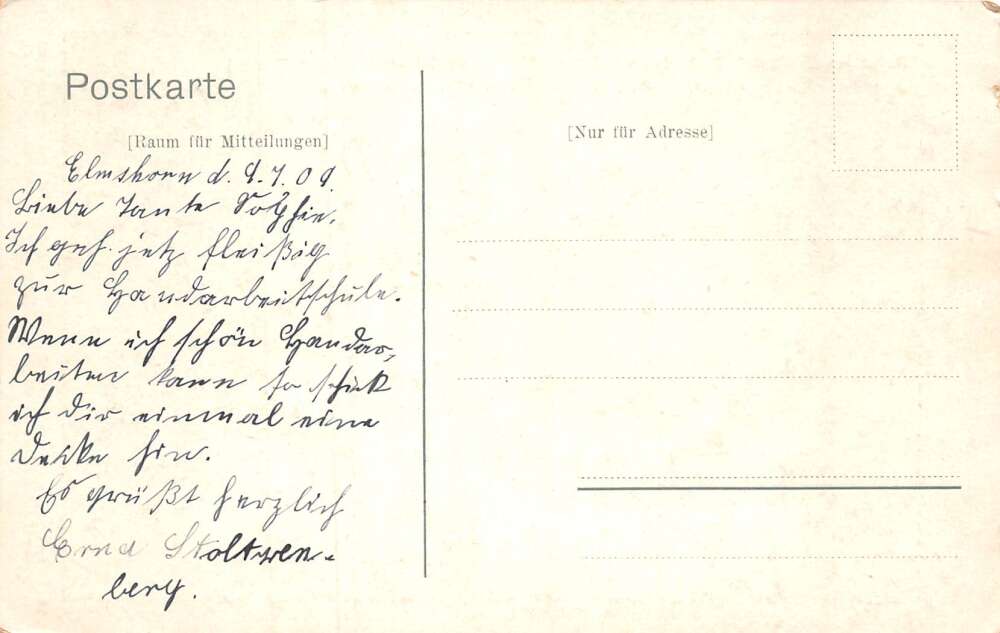 Postkarte
[Raum für Mitteilungen]
[Nur für Adresse]
Elmshorn d. 9.7.09.
Liebe Tante Sophie.
Ich geh. jetz fleißig
zur Handarbeitschule.
Wenn ich schön Handar,
beiten kann so schick
ich dir einmal eine
Decke hin.
Es grüßt herzlich
Erna Stoltzen-
berg.